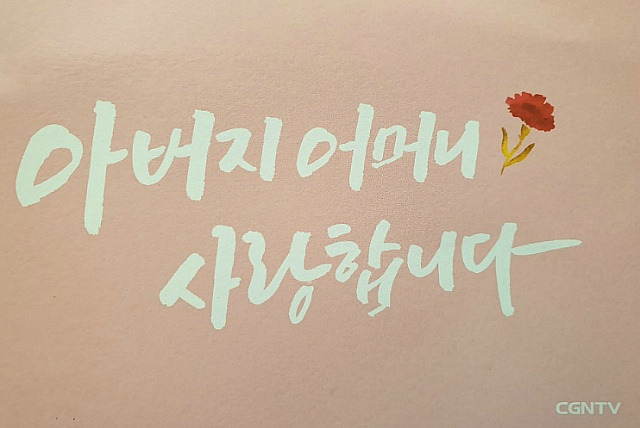 아버지 어머니
사랑합니다
CGNTV